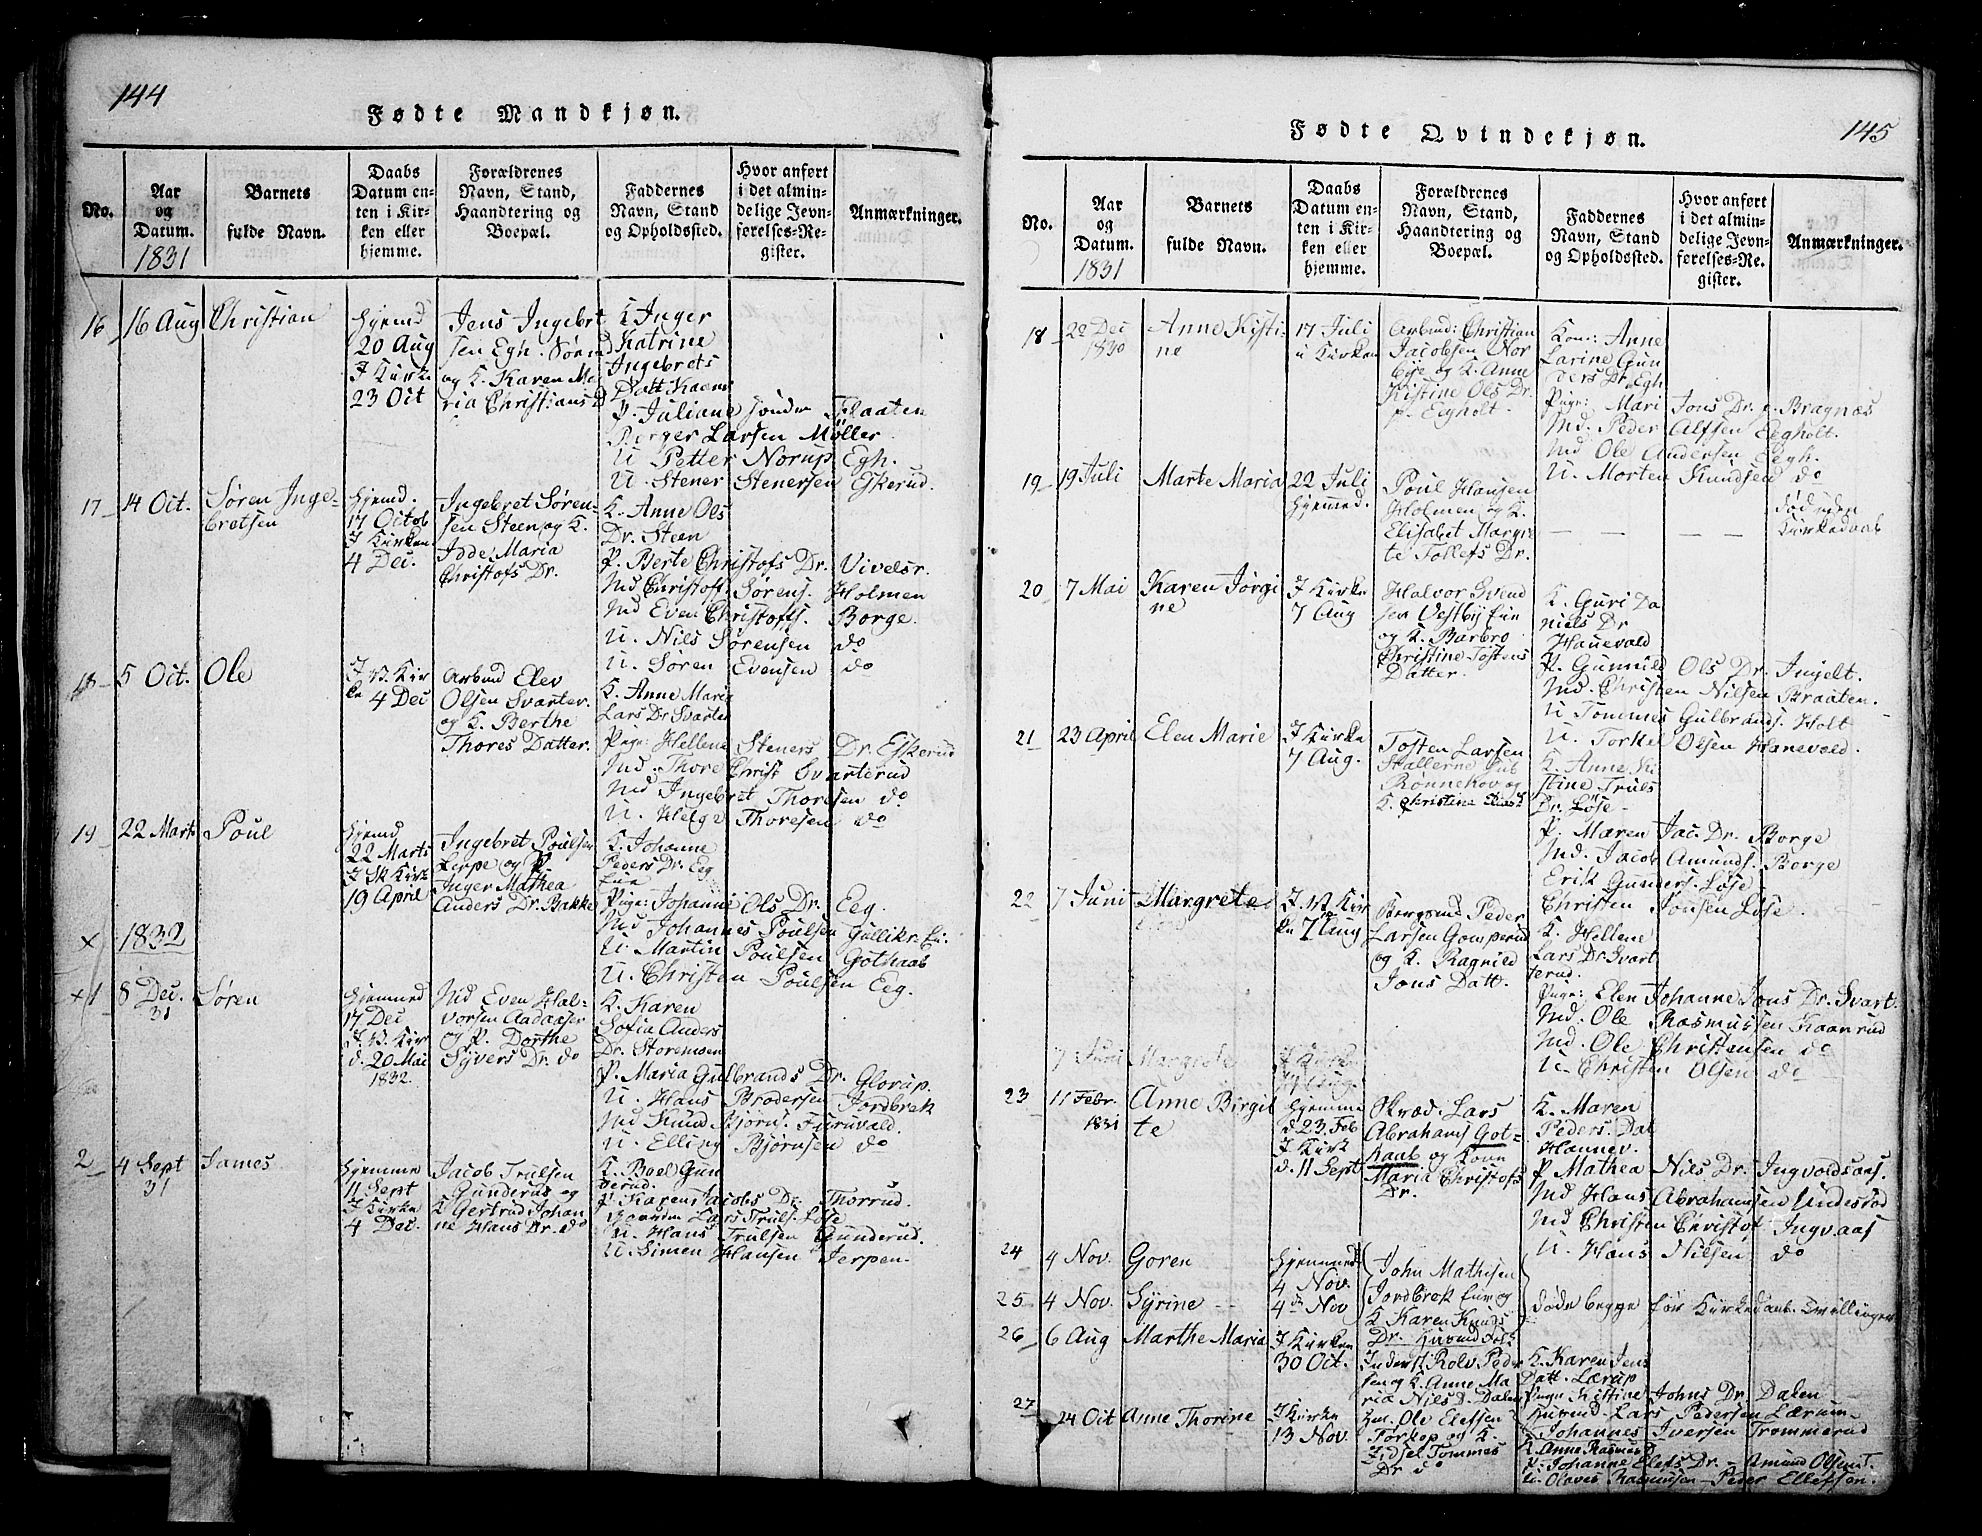 144
Fødte Mandkjøn.
No.
Aar
og
Datum.
1831
Barnets
fulde Navn.
Daabs
Datum en-
ten i Kir-
ken eller
hjemme.
Forældrenes
Navn, Stand,
Haandtering og
Boepæl.
Faddernes
Navn, Stand
og Opholdssted.
Hvor anført
i det almin-
delige Jevn-
førelses-Re-
gister.
Anmærkninger.
16
16 Aug
Christian
Hjemd
20 Aug
I Kirke
23 Oct
Jens Ingebret
sen Egh. Sørnd
og K. Karen Ma
ria Christians D
K. Inger
Katrine
Ingebrets
Datt Kaens
P. Juliane Sønden Flaaten
Børger Larsen Møller
U Petter Norup Egh.
U. Stener Stenersen Eskerud.
17
14 Oct.
Søren Inge-
bretsen
Hjemd.
17 Octob
I Kirken
4 Dec.
Ingebret Søren-
sen Steen og K.
Idde Maria
Christofs Dr.
K. Anne Ols
Dr. Steen
P. Berte Christofs Dr. Vivelsr.
Md Christoft Sørens. Holmen
Md Even Christoffs. Borge.
U. Nils Sørensen do
U. Søren Evensen do
18
5 Oct.
Ole
I V. Kir
ke
4 Dec
Arbmd Elev
Olsen Svarter.
og K. Berthe
Thores Datter.
K. Anne Maria
Lars Dr Svarter
Pige: Hellene Steners Dr. Eskerud
Md. Thore Christ Svarterud
Md Ingebret Thoresen do
U. Helge Thoresen do
19
22 Marts
Poul
Hjemd
22 Marts
I Sk Kirk
19 April
Ingebret Poulsen
Lerpe og P.
Inger Mathea
Anders Dr. Bakke
K. Johanne
Peders Dr. Eeg
Eie
Pige: Johanne Ols Dr. Eeg.
Md Johannes Poulsen Gullikr. Ei.
U. Martin Poulsen Gothaab
U. Christen Poulsen Eeg.
x
1832
x 1
8 Dec.
31
Søren
Hjemmed
17 Dec
I. V. Kir
d. 20 Mai
1832.
Md Even Hal-
vorsen Aadaaser
og P. Dorthe
Syvers Dr. do
K. Karen
Sofia Anders
Dr. Storemoen
P. Maria Gulbrands Dr. Glorup.
U. Hans Brodersen Jordbrek
Md Knud Bjørns. Furuvald.
U. Elling Bjørnsen do
2
4 Sept
31
James
Hjemme
11 Sept
I Kirke
4 Dec.
Jacob Trulsen
Gunderud og
K Gertrud Johan
ne Hans Dr. do
K. Boel Gun
derud.
P. Karen Jacobs Dr. Thorrud.
Gaardm Lars Truls. Løse.
U. Hans Trulsen Gunderud.
U. Simen Hansen Jerpen.
145
Fødte Qvindekjøn.
No.
Aar
og
Datum.
1831
Barnets
fulde Navn.
Daabs
Datum en-
ten i Kir-
ken eller
hjemme.
Forældrenes
Navn, Stand,
Haandtering og
Boepæl.
Faddernes
Navn, Stand
og Opholdssted.
Hvor anført
i det almin-
delige Jevn-
førelses-Re-
gister.
Anmærkninger.
18
22 Dec
1830
Anne Kisti-
ne
17 Juli
i Kirken
Arbmd: Christian
Jacobsen Nor
bye og K. Anne
Kistine Ols Dr.
p. Egholt.
Kon: Anne
Larine Gun
ders Dr. Egh
Pige: Mari Jons Dr. p. Bragnæs
Md. Peder Alfsen Eegholt.
Md Ole Andersen Eegh.
U. Morten Knudsen do
19
19 Juli
Marte Maria
22 Juli
Hjemmed.
Poul Hansen
Holmen og K.
Elisabet Margre
te Tollefs Dr.
død uden
Kirkedaab
20
7 Mai
Karen Jørgi
ne
I Kirke
7 Aug
Halvor Svend
sen Vestby Eie
og K. Barbro
Christine Tostens
Datter.
K. Guri Da
niels Dr
Hanevald
P. Gunnild Ols Dr. Ingelt.
Md. Christen Nilsen Braaten.
U. Tommes Gulbrands. Holt
U. Torkel Olsen Hanevold.
21
23 April
Elen Marie
I Kirke
7 Aug.
Tosten Larsen
Skallerne Gub
Rønnehov og
K. Christine
K. Anne Ki
stine Truls
Dr. Løse
P. Maren Jac. Dr. Borge
Md. Jacob Amunds. Borge
Erik Gunders. Løse
Christen Jonsen Løse.
22
7 Juni
Margrete
I. V. Kir
ke 7 Aug
Bergmd Peder
Larsen Gomperud
og K. Ragnild
Jons Datt.
K. Hellene
Lars Dr Svart
terud.
Pige: Elen Johanne Jons Dr. Svart.
Md. Ole Rasmussen Kaanrud
Md. Ole Christiansen do
U. Christen Olsen do
7 Juni
Margrete
I Kirke
7 Aug.
23
11 Febr.
1831
Anne Birgit
te
Hjemme
d 23. Feb
I Kirk
d. 11 Sept
Skræd. Lars
Abrahams Got-
haab og Konn
Maria Christofs
Dr.
K. Maren
Peders. Dat
Hannev.
P. Mathea Nils Dr. Ingvoldsaas.
Md Hans Abrahamsen Undesrod
Md Christen Christof. Ingvaas
U. Hans Nilsen do
24
4 Nov.
Goren
Hjemmed
4 Nov.
John Mathisen
Jordbrek Eie og
K Karen Knuds
Dr.
25
4 Nov.
Syrine
4de Nov
døde begge før Kirkedaab. Tvillinger
26
6 Aug
Marthe Maria
I Kirken
30 Oct.
Inderst Rolv Peder
sen og K. Anne Ma
ria Nils D. Dalen
K. Karen Jens
Datt. Lærup
Pige Kistine Johns Dr. Dalen
Husmd. Lars Pedersen Lærum
Johannes Iversen Trommerud
27
24 Oct
Anne Thorine
I Kirke
13 Nov.
Hm. Ole Elefsen
Torkop og K.
Zidsel Tommes
Dr do
K Anne Rasmus D
P. Johanne Elefs Dr. Amund Olsen T.
U. Olaves Rasmusen Peder Ellefsen.